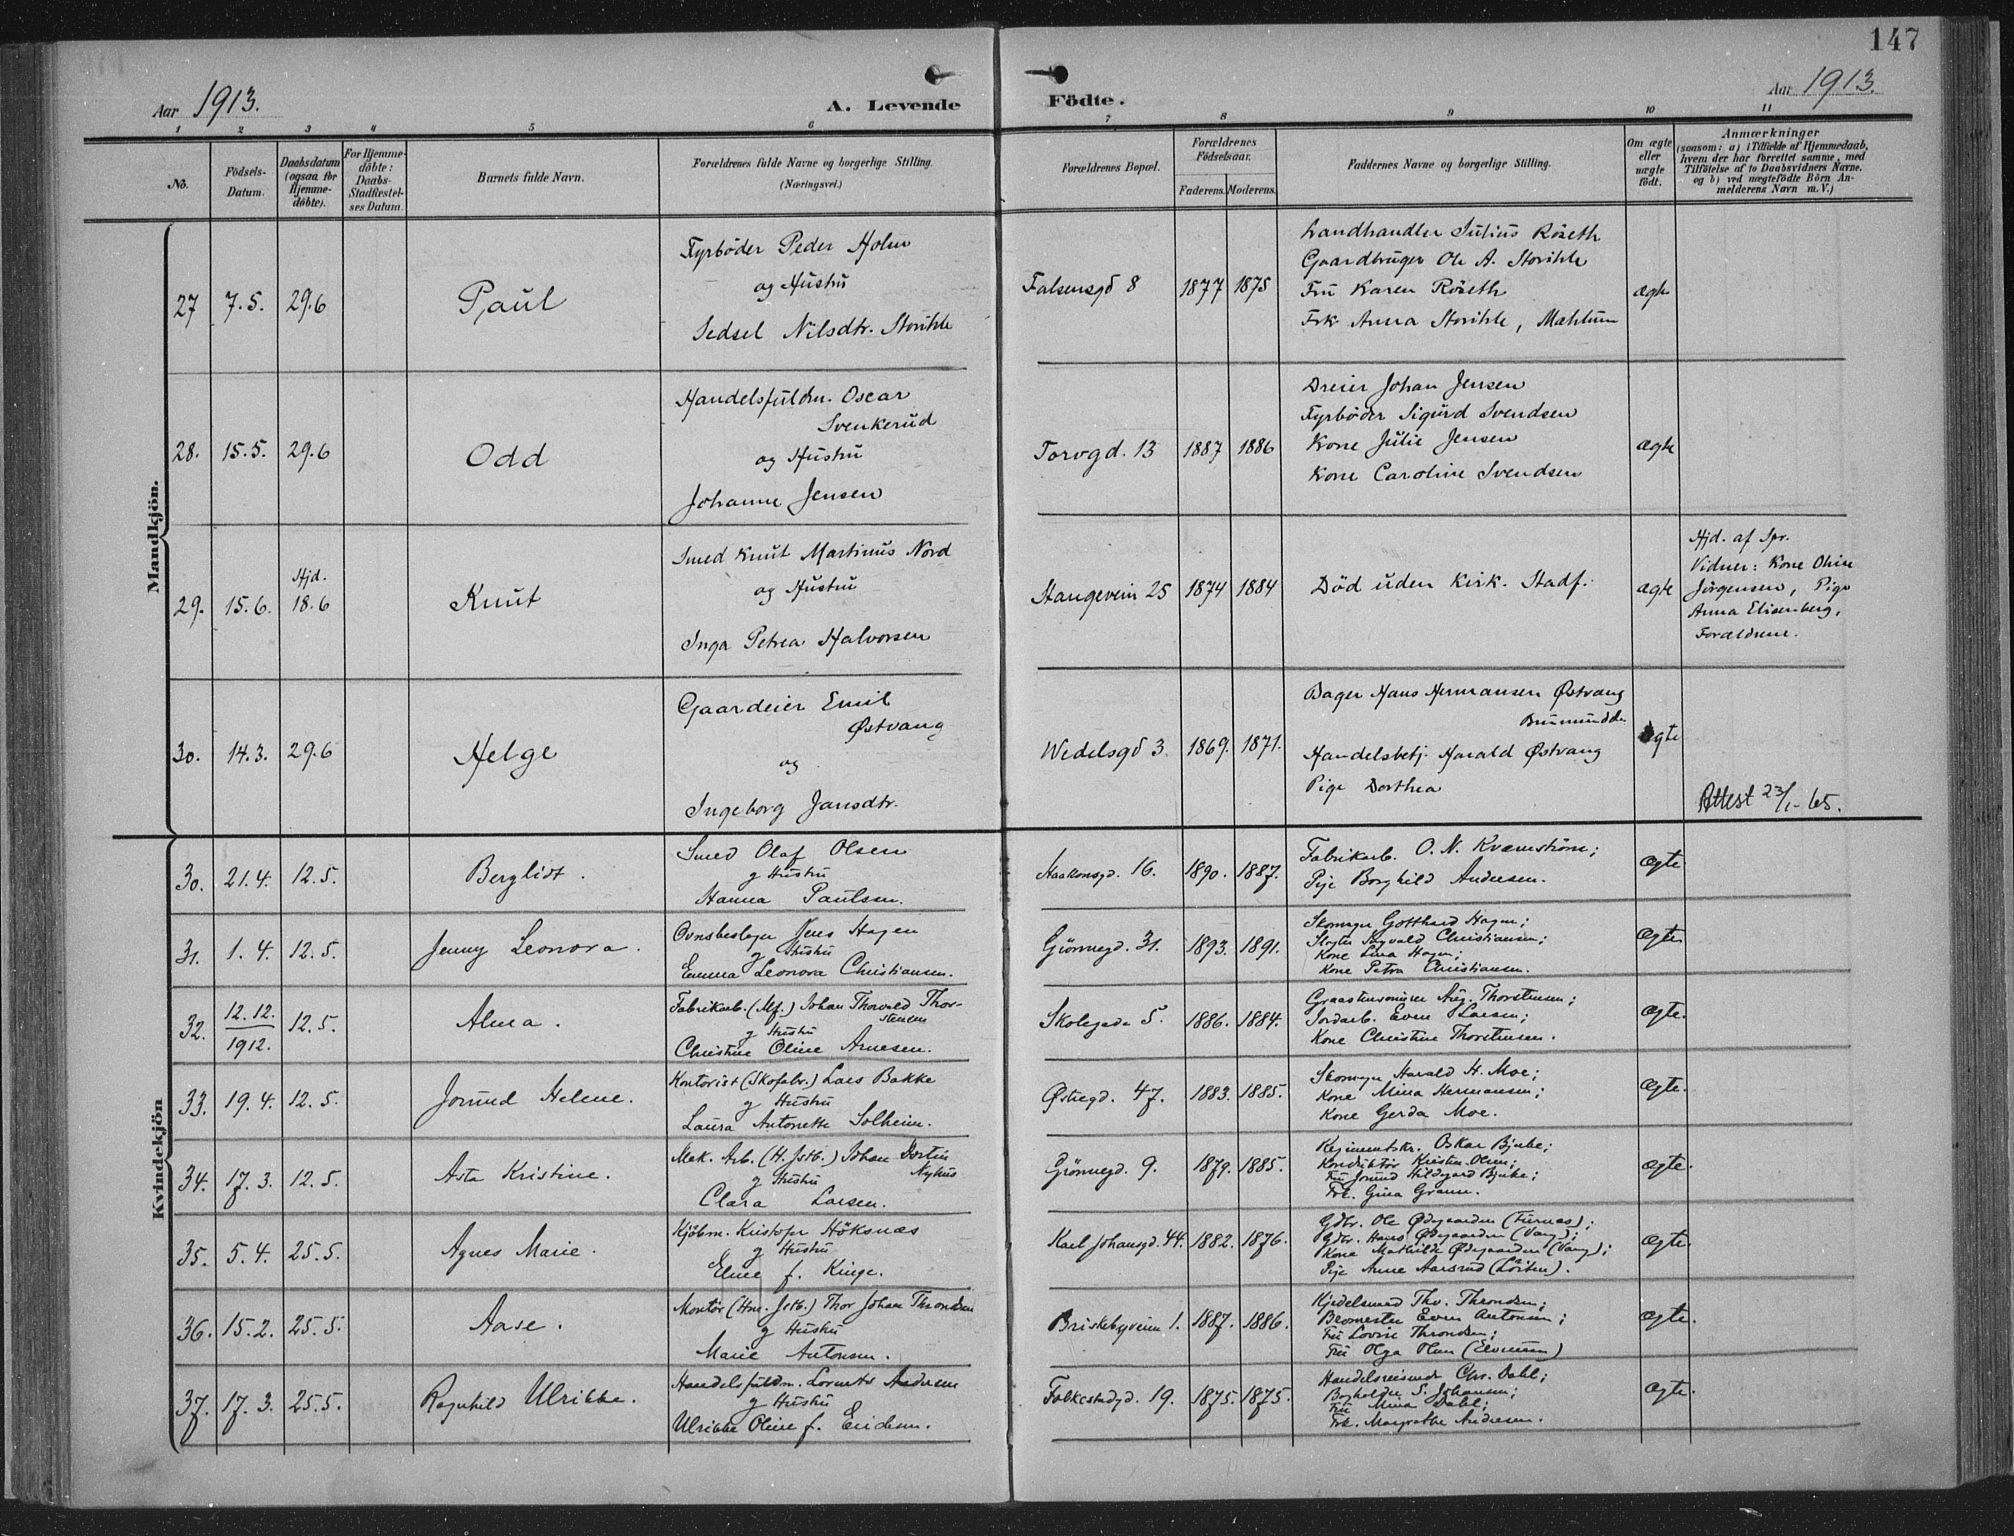 147
Aar 1913.
A. Levende Födte.
Aar 1913.
1 2 3 4 5 6 7 8 9 10 11
No.
Födsels-
Datum.
Daabsdatum
(ogsaa for
Hjemme-
döbte).
For Hjemme-
döbte:
Daabs-
Stadfæstel-
ses Datum.
Barnets fulde Navn.
Forældrenes fulde Navne og borgerlige Stilling.
(Næringsvei.)
Forældrenes Bopæl.
Forældrenes
Födselsaar.
Faderens. Moderens.
Faddernes Navne og borgerlige Stilling.
Om ægte
eller
uægte
födt.
Anmærkninger
(saasom: a) i Tilfælde af Hjemmedaab,
hvem der har forrettet samme, med
Tilföielse af to Daabsvidners Navne.
og b) ved uægtefödte Börn An-
melderens Navn m. V.)
Mandkjön.
27 7.5. 29.6 Paul
Fyrbøder Peder Holm
og Hustru
Sedsel Nilsdtr. Storihle
Falsensgd 8 1877 1875
Landhandler Julius Röseth
Gaardbruger Ole A. Storihle
Fru Karen Röseth
Frk. Anna Storihle, Mæhlum
ægte
28. 15.5. 29.6 Odd
Handelsfuldm. Oscar
Svenkerud
og Hustru
Johanne Jensen
Torvgd. 13 1887 1886
Dreier Johan Jensen
Fyrbøder Sigurd Svendsen
Kone Julie Jensen
Kone Caroline Svendsen
ægte
29. 15.6. Hjd.
18.6 Knut
Smed Knut Martinus Nord
og Hustru
Inga Petrea Halvorsen
Stangevein 25 1874 1884
Död uden kirk. Stadf.
ægte
Hjd. af Spr.
Vidner: Kone Oline
Jörgensen, Pige
Anna Elisenberg,
Forældrene.
30. 14.3. 29.6 Helge
Gaardeier Emil
Østvang
og
Ingeborg Jansdtr.
Wedelsgd 3 1869. 1871.
Bager Hans Hermansen Østvang
Brumundda
Handelsbetj. Harald Østvang
Pige Dorthea
ægte
Attest 23/1-65.
Kvindekjön
30. 21.4. 12.5. Berglidt.
Smed Olaf Olsen
og Hustru
Hanna Paulsen.
Haakonsgd. 16. 1890. 1887.
Fabrikarb. O. N. Kværnström;
Pige Borghild Andersen.
ægte
31. 1. 4. 12.5. Jenny Leonora.
Ovnsbeslager Jens Hagen
og Hustru
Emma Leonora Christiansen.
Grönnegd. 31. 1893. 1891.
Skomager Gotthard Hagen;
Sigvald Christiansen;
Kone Lina Hagen;
Kone Petra Christiansen.
ægte
32. 12.12.
1912. 12.5. Alma.
Fabrikarb. (Mf.) Johan Thorvald Thor-
stensen
og Hustru
Christine Oline Arnesen.
Skolegade 5. 1886. 1884.
Graastensminer Aug. Thorstensen;
Jordarb. Even Larsen;
Kone Christine Thorstensen.
ægte.
33. 19.4. 12.5. Jorund Helene.
Kontorist (Skofabr.) Lars Bakke
og Hustru
Laura Antonette Solheim.
Østregd. 47. 1883. 1885.
Skomager Harald H. Moe;
Kone Mina Hermansen;
Kone Gerda Moe.
ægte.
34. 17.3. 12.5. Asta Kristine.
Mek. Arb. (H. Jstb.) Johan
Nyhus
og Hustru
Clara Larsen.
Grönnegd. 9. 1879. 1885.
Regimentskr. Oskar Bjerke;
Konduktör Kristen Olsen;
Fru Jorund Hildegard Bjerke;
Frk. Gina Gran.
ægte.
35. 5.4. 25.5. Agnes Marie.
Kjöbm. Kristofer Höksnæs
og Hustru
Eline f. Kinge.
Karl Johansgd. 44. 1882. 1876.
Gdbr. Ole Ødegaarden (Furnes);
Gdbr. Hans Ødegaarden (Vang);
Kone Mathilde Ødegaarden (Vang);
Pige Anne Aarsrud (Löiten).
ægte.
36. 15.2. 25.5. Aase.
Montör (Hm. Jstb.) Thor Johan Throndsen
og Hustru
Marie Antonsen.
Briskebyveien 1. 1887. 1886.
Kjedelsmed Thv. Throndsen;
Even Antonsen;
Fru Lovise Throndsen;
Fru Olga Olsen (Elverum)
ægte.
37. 17.3. 25.5. Ragnhild Ulrikke.
Handelsfuldm. Lorents Andersen
og Hustru
Ulrikke Oline f. Ericksen.
Folkestadgd. 19. 1875. 1875.
Handelsreisende Chr. Dahl;
Bogholder S. Johansen;
Fru Mina Dahl;
Frk. Margrethe Andresen.
ægte.